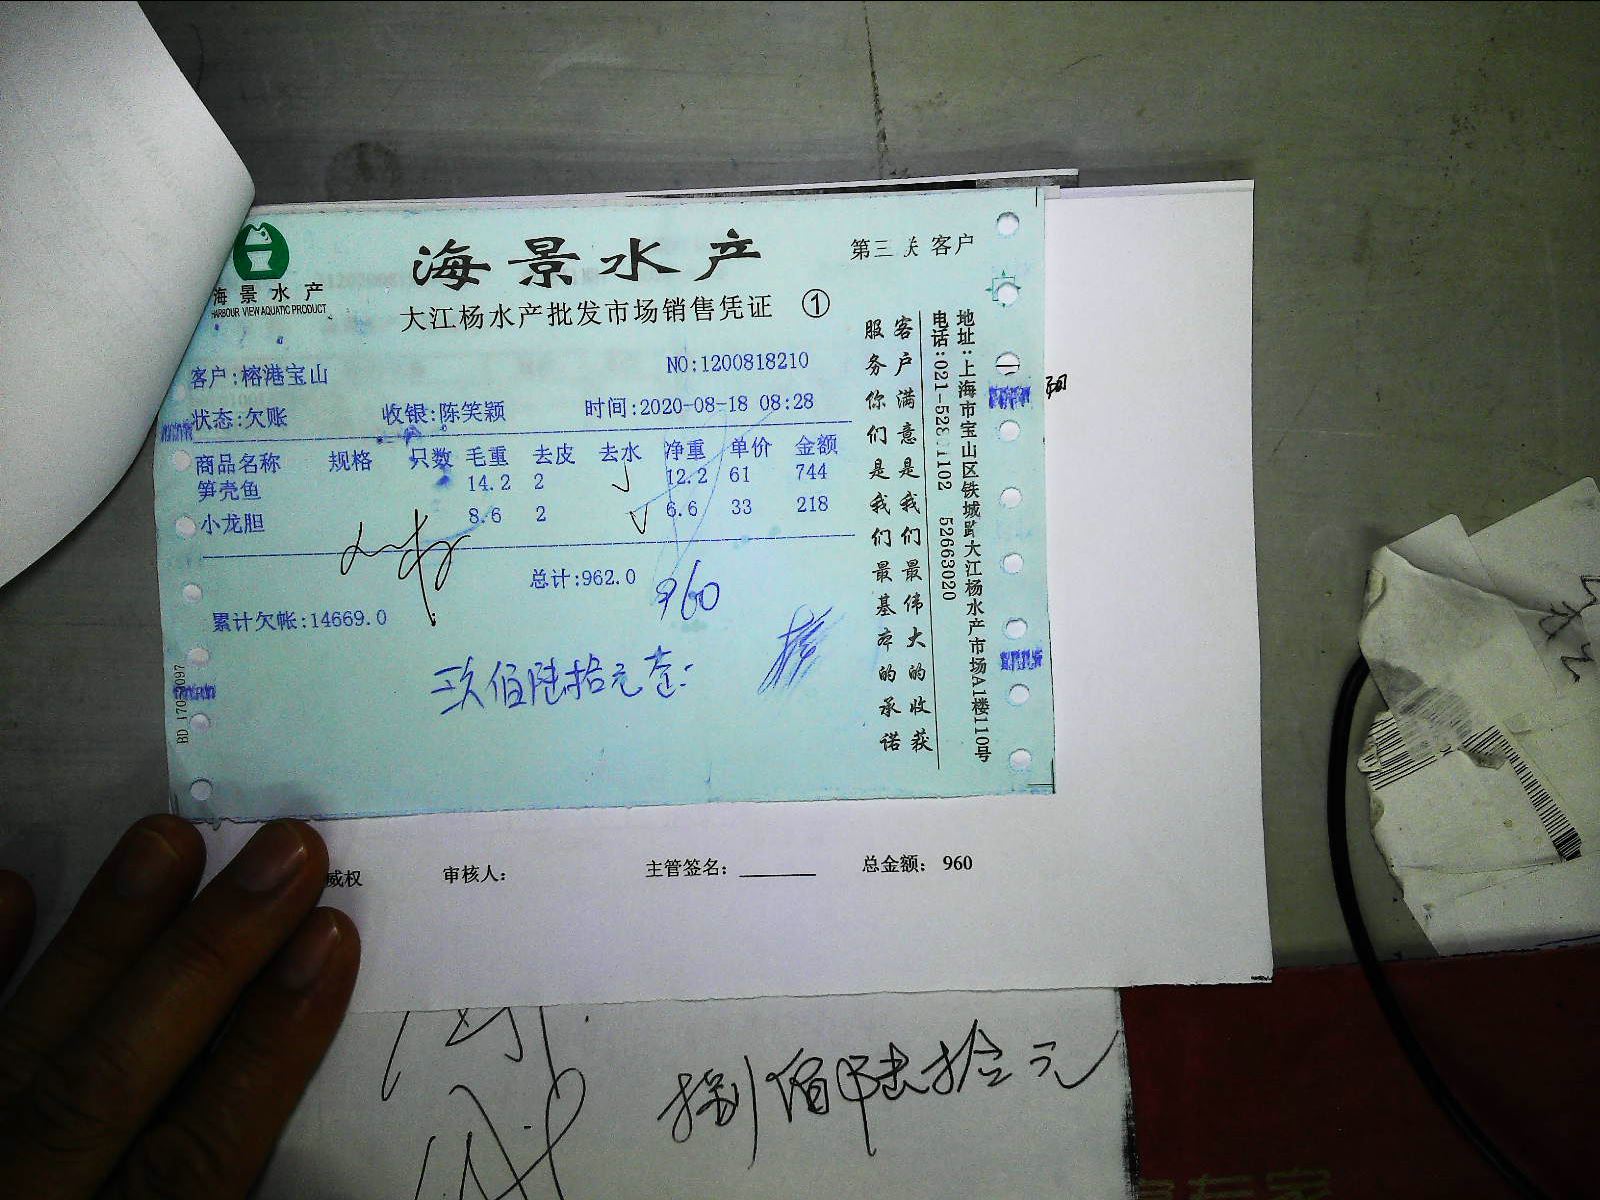 海景水产
HARBOUR VIEW AQUATIC PRODUCT
海景水产
第三 关 客户
大江杨水产批发市场销售凭证 ①
客户:榕港宝山
NO:1200818210
状态:欠账 收银:陈笑颖 时间:2020-08-18 08:28
商品名称 规格 只数 毛重 去皮 去水 净重 单价 金额
笋壳鱼 14.2 2 12.2 61 744
小龙胆 8.6 2 6.6 33 218
总计:962.0
960
累计欠帐:14669.0
玖佰陆拾元整
客户满意是我们最伟大的收获
服务你们是我们最基本的承诺
地址:上海市宝山区铁城路大江杨水产市场A1楼110号
电话:021-52 1102 52663020
威权 审核人: 主管签名: 总金额: 960
捌佰陆拾元